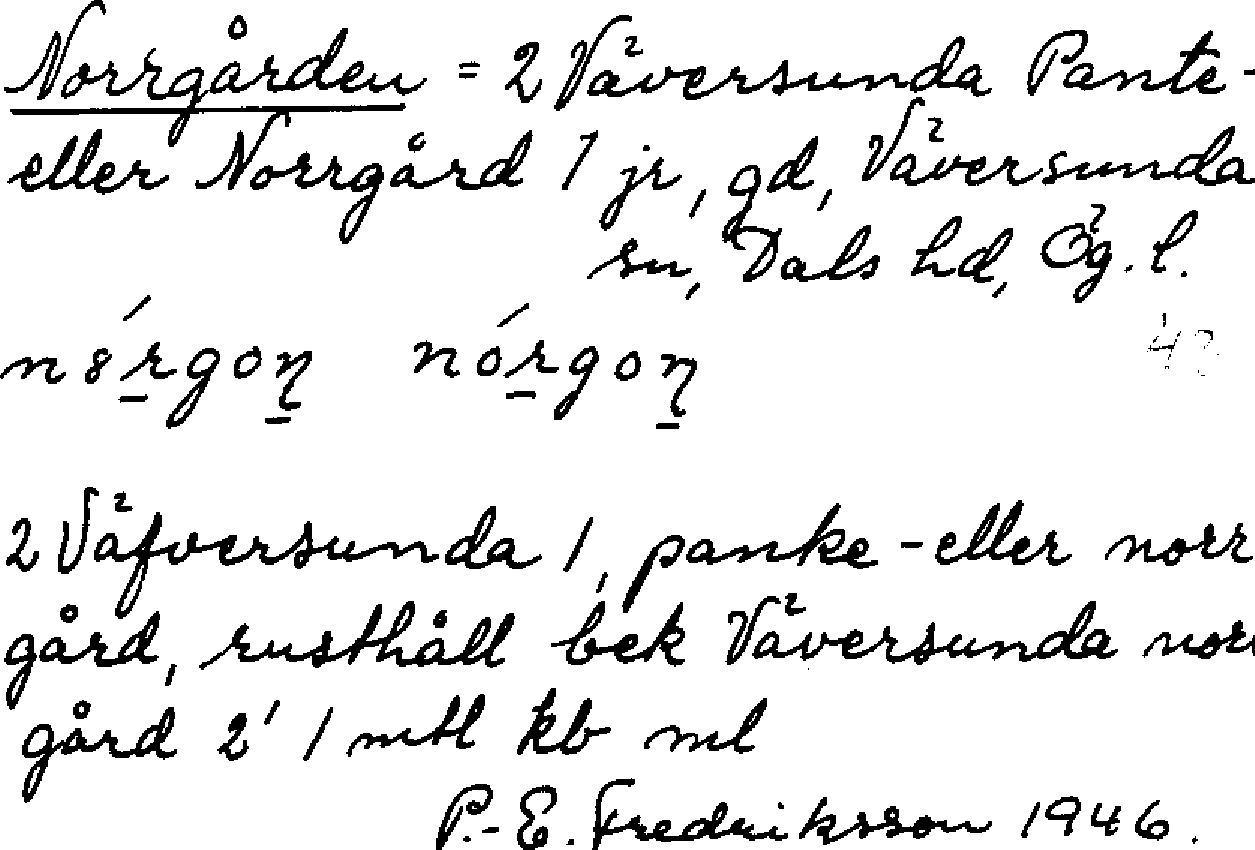 Norrgården = 2 Väversunda Pante-
eller Norrgård 1 jr, gd, Väversunda
sn, Dals hd, Ög. l.
n8́rgoņ nórgoņ
2 Väfversunda 1, panke-eller norr
gård, rusthåll bek Väversunda norr
gård 2' 1 mtl kb ml
P.-E. Fredriksson 1946.